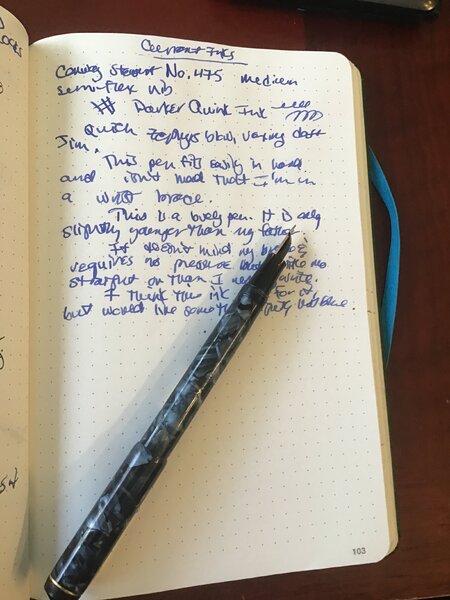 Current Inks
Conway Stewart No. 475 medium
semi-flex nib
# Parker Quink Ink
Quick zephyrs blow, vexing daft
Jim.
This pen fits easily in hand
and isn't mad that I'm in
a wrist brace.
This is a lovely pen. It is only
slightly younger than my father.
It doesn't mind my brace;
requires no pressure
than I
I think the ink for it
but would like something
103